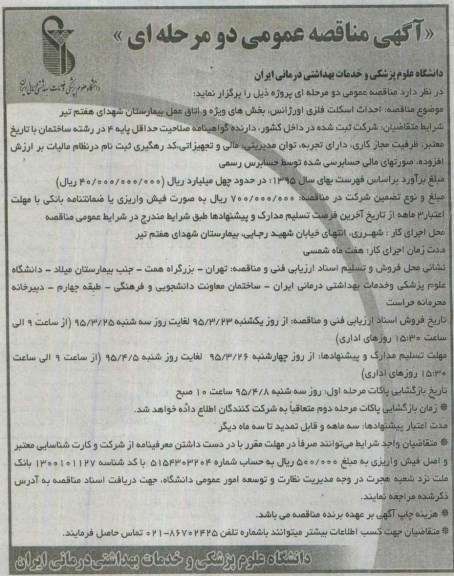 «آگهی مناقصه عمومی دو مرحله ای»
دانشگاه علوم پزشکی و خدمات بهداشتی درمانی ایران
دانشگاه علوم پزشکی و خدمات بهداشتی درمانی ایران
در نظر دارد مناقصه عمومی دو مرحله ای پروژه ذیل را برگزار نماید:
موضوع مناقصه: احداث اسکلت فلزی اورژانس، بخش های ویژه و اتاق عمل بیمارستان شهدای هفتم تیر
شرایط متقاضیان: شرکت ثبت شده در داخل کشور، دارنده گواهینامه صلاحیت حداقل پایه ۴ در رشته ساختمان با تاریخ
معتبر، ظرفیت مجاز کاری، دارای تجربه، توان مدیریتی، مالی و تجهیزاتی،کد رهگیری ثبت نام درنظام مالیات بر ارزش
افزوده، صورتهای مالی حسابرسی شده توسط حسابرس رسمی
مبلغ برآورد براساس فهرست بهای سال ۱۳۹۵: در حدود چهل میلیارد ریال (۴۰/۰۰۰/۰۰۰/۰۰۰ ریال)
مبلغ و نوع تضمین شرکت در مناقصه: ۷۰۰/۰۰۰/۰۰۰ ریال به صورت فیش واریزی یا ضمانتنامه بانکی با مهلت
اعتبار۳ ماهه از تاریخ آخرین فرصت تسلیم مدارک و پیشنهادها طبق شرایط مندرج در شرایط عمومی مناقصه
محل اجرای کار : شهـرری، انتهای خیابان شهید رجایی، بیمارستان شهدای هفتم تیر
مدت زمان اجرای کار: هفت ماه شمسی
نشانی محل فروش و تسلیم اسناد ارزیابی فنی و مناقصه: تهران - بزرگراه همت - جنب بیمارستان میلاد - دانشگاه
علوم پزشکی وخدمات بهداشتی درمانی ایران - ساختمان معاونت دانشجویی و فرهنگی - طبقه چهارم - دبیرخانه
محرمانه حراست
تاریخ فروش اسناد ارزیابی فنی و مناقصه: از روز یکشنبه ۹۵/۳/۲۳ لغایت روز سه شنبه ۹۵/۳/۲۵ (از ساعت ۹ الی
ساعت ۱۵:۳۰ روزهای اداری)
مهلت تسلیم مدارک و پیشنهادها: از روز چهارشنبه ۹۵/۳/۲۶ لغایت روز شنبه ۹۵/۴/۵ (از ساعت ۹ الی ساعت
۱۵:۳۰ روزهای اداری)
تاریخ بازگشایی پاکات مرحله اول: روز سه شنبه ۹۵/۴/۸ ساعت ۱۰ صبح
* زمان بازگشایی پاکات مرحله دوم متعاقباً به شرکت کنندگان اطلاع داده خواهد شد.
مدت اعتبار پیشنهادها: سه ماهه و قابل تمدید تا سه ماه دیگر
* متقاضیان واجد شرایط می‌توانند صرفاً در مهلت مقرر با در دست داشتن معرفینامه از شرکت و کارت شناسایی معتبر
و اصل فیش واریزی به مبلغ ۵۰۰/۰۰۰ ریال به حساب شماره ۵۱۵۴۳۰۳۲۰۴ با کد شناسه ۱۳۰۰۱۰۱۱۲۷ بانک
ملت نزد شعبه هجرت در وجه مدیریت نظارت و توسعه امور عمومی دانشگاه، جهت دریافت اسناد مناقصه به آدرس
ذکرشده مراجعه نمایند.
* هزینه چاپ آگهی بر عهده برنده مناقصه می باشد.
* متقاضیان جهت کسب اطلاعات بیشتر میتوانند باشماره تلفن ۸۶۷۰۲۴۲۵-۰۲۱ تماس حاصل فرمایند.
دانشگاه علوم پزشکی و خدمات بهداشتی درمانی ایران